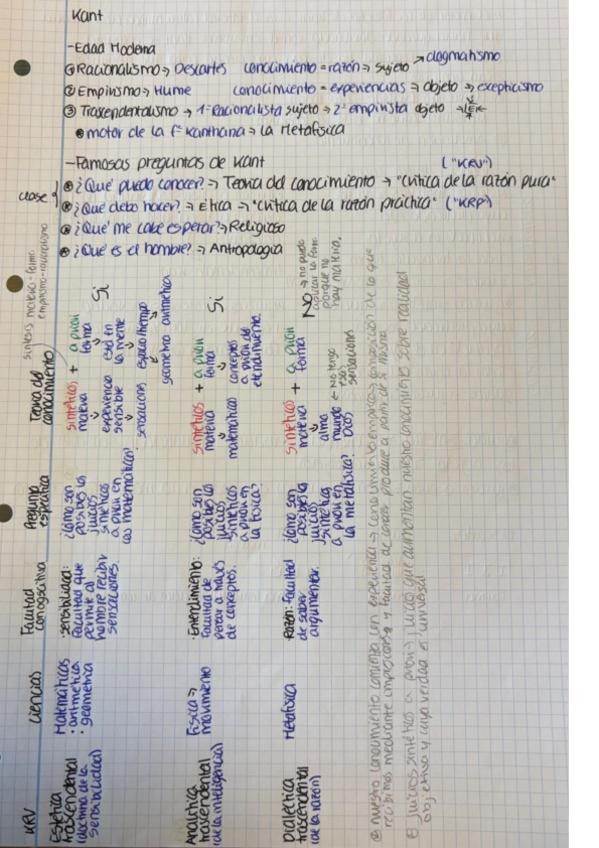 Kant
-Edad Moderna
① Racionalismo → Descartes conocimiento = razón → sujeto → dogmatismo
② Empirismo → Hume conocimiento = experiencias → objeto → escepticismo
③ Trascendentalismo → 1º Racionalista sujeto → 2º empirista objeto →
• motor de la fª Kantiana → La Metafísica
-Famosas preguntas de Kant ("KRV")
clase
• ¿Qué puedo conocer? → Teoría del conocimiento → "Crítica de la razón pura"
• ¿Qué debo hacer? → Ética → "Crítica de la razón práctica" ("KRP")
• ¿Qué me cabe esperar? → Religioso
• ¿Qué es el hombre? → Antropología
KRV
Ciencias
Facultad
Pregunta
específica
Teoría del
conocimiento
síntesis materia-forma
empirismo-racionalismo
Estética
trascendental
(doctrina de la
sensibilidad)
Matemáticas
· aritmética
· geometría
· Sensibilidad:
Facultad que
permite al
hombre recibir
sensaciones.
¿Cómo son
posibles los
juicios
sintéticos
a priori en
las matemáticas?
sintéticos + a priori
materia forma
experiencia está en
sensible la mente
sensaciones espacio/tiempo
geometría aritmética
Sí
Analítica
trascendental
(de la inteligencia)
Física →
movimiento
· Entendimiento:
facultad de
pensar a través
de conceptos.
¿Cómo son
posibles los
juicios
sintéticos
a priori en
la física?
sintéticos + a priori
materia forma
matemáticos conceptos
a priori del
entendimiento
Sí
Dialéctica
trascendental
(de la razón)
Metafísica
Razón: facultad
de saber
argumentar.
¿Cómo son
posibles los
juicios
sintéticos
a priori en
la metafísica?
sintéticos + a priori
materia forma
alma
mundo ← No tengo
Dios esas
sensaciones
NO → no puedo
aplicar la forma
porque no
hay materia.
nuestro conocimiento comienza con experiencia → conocimiento empírico → composición de lo que
recibimos mediante impresiones y facultad de conocer produce a partir de sí misma
juicios sintéticos a priori → juicios que aumentan nuestro conocimiento sobre realidad
objetiva y cuya verdad es universal